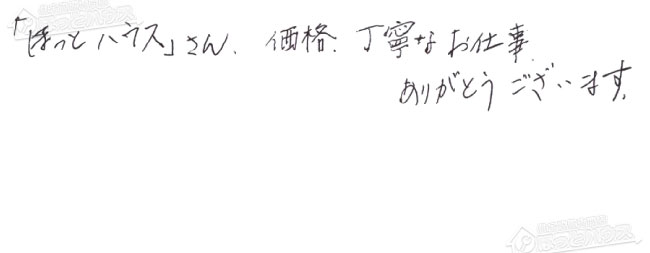 「ほっとハウス」さん、価格、丁寧なお仕事、
ありがとうございます。